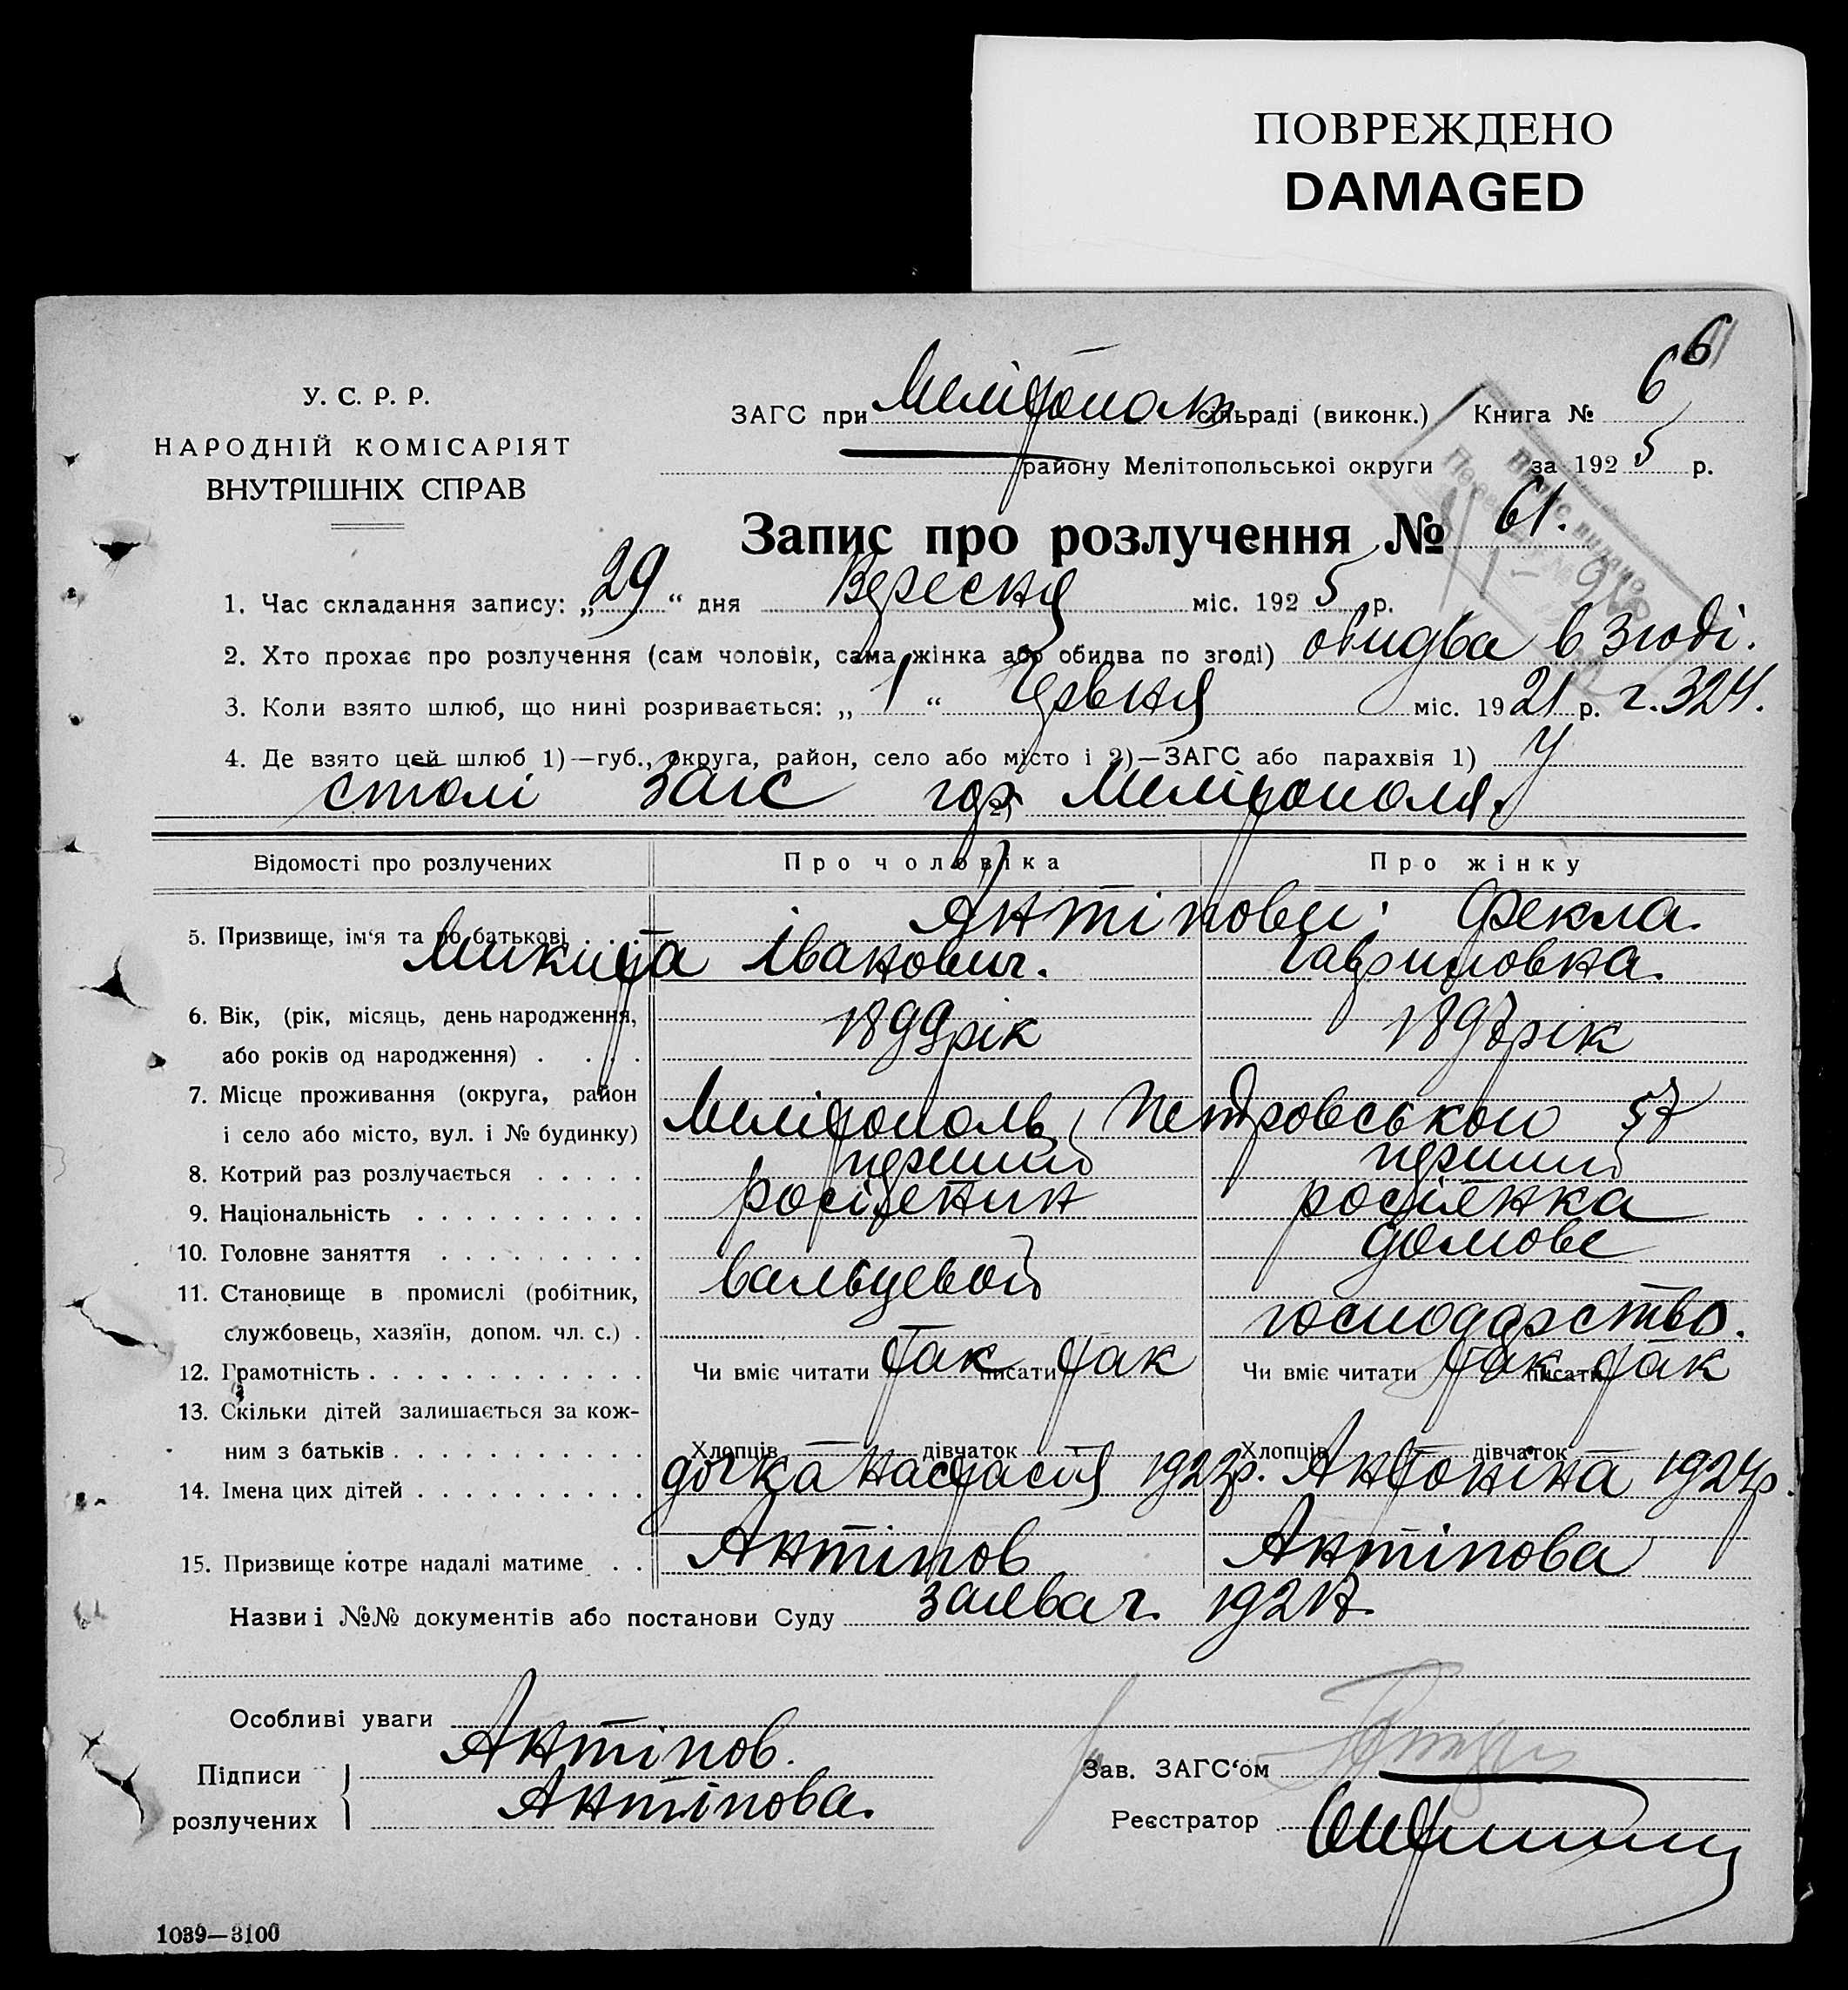 ПОВРЕЖДЕНО
DAMAGED
6
У. С. Р. Р.
НАРОДНІЙ КОМІСАРІЯТ
ВНУТРІШНІХ СПРАВ
ЗАГС при Мелітополь сільраді (виконк.) Книга № 6
району Мелітопольської округи за 1925 р.
Запис про розлучення № 61.
1. Час складання запису: „29“ дня Вересня міс. 1925 р.
2. Хто прохає про розлучення (сам чоловік, сама жінка або обидва по згоді) обидва в згоді.
3. Коли взято шлюб, що нині розривається: „1“ Червня міс. 1921 р. ч. 324.
4. Де взято цей шлюб 1)—губ., округа, район, село або місто і 2)—ЗАГС або парахвія 1) У
столі загс гор. 2) Мелітополя.
Відомості про розлучених Про чоловіка Про жінку
5. Призвище, ім'я та по батькові Антіпови: Фекла
Микита Іванович. Гавриловна.
6. Вік, (рік, місяць, день народження, 1899 рік 1897 рік
або років од народження) . . . .
7. Місце проживання (округа, район
і село або місто, вул. і № будинку) Мелітополь, Петровської 57
8. Котрий раз розлучається . . . . . перший перший
9. Національність . . . . . . . . . . росіянин росіянка
10. Головне заняття . . . . . . . . . домове
11. Становище в промислі (робітник, вальцевой
службовець, хазяїн, допом. чл. с.) . господарство.
12. Грамотність . . . . . . . . . . . . Чи вміє читати так писати так Чи вміє читати так писати так
13. Скільки дітей залишається за кож-
ним з батьків . . . . . . . . . . . Хлопців дівчаток Хлопців дівчаток
14. Імена цих дітей . . . . . . . . . . дочка Настасія 1922р. Антоніна 1924р.
15. Призвище котре надалі матиме . . Антіпов Антіпова
Назви і №№ документів або постанови Суду заява ч.
Особливі уваги
Підписи Антіпов. Зав. ЗАГС'ом
розлучених Антіпова. Реєстратор
1039—3100